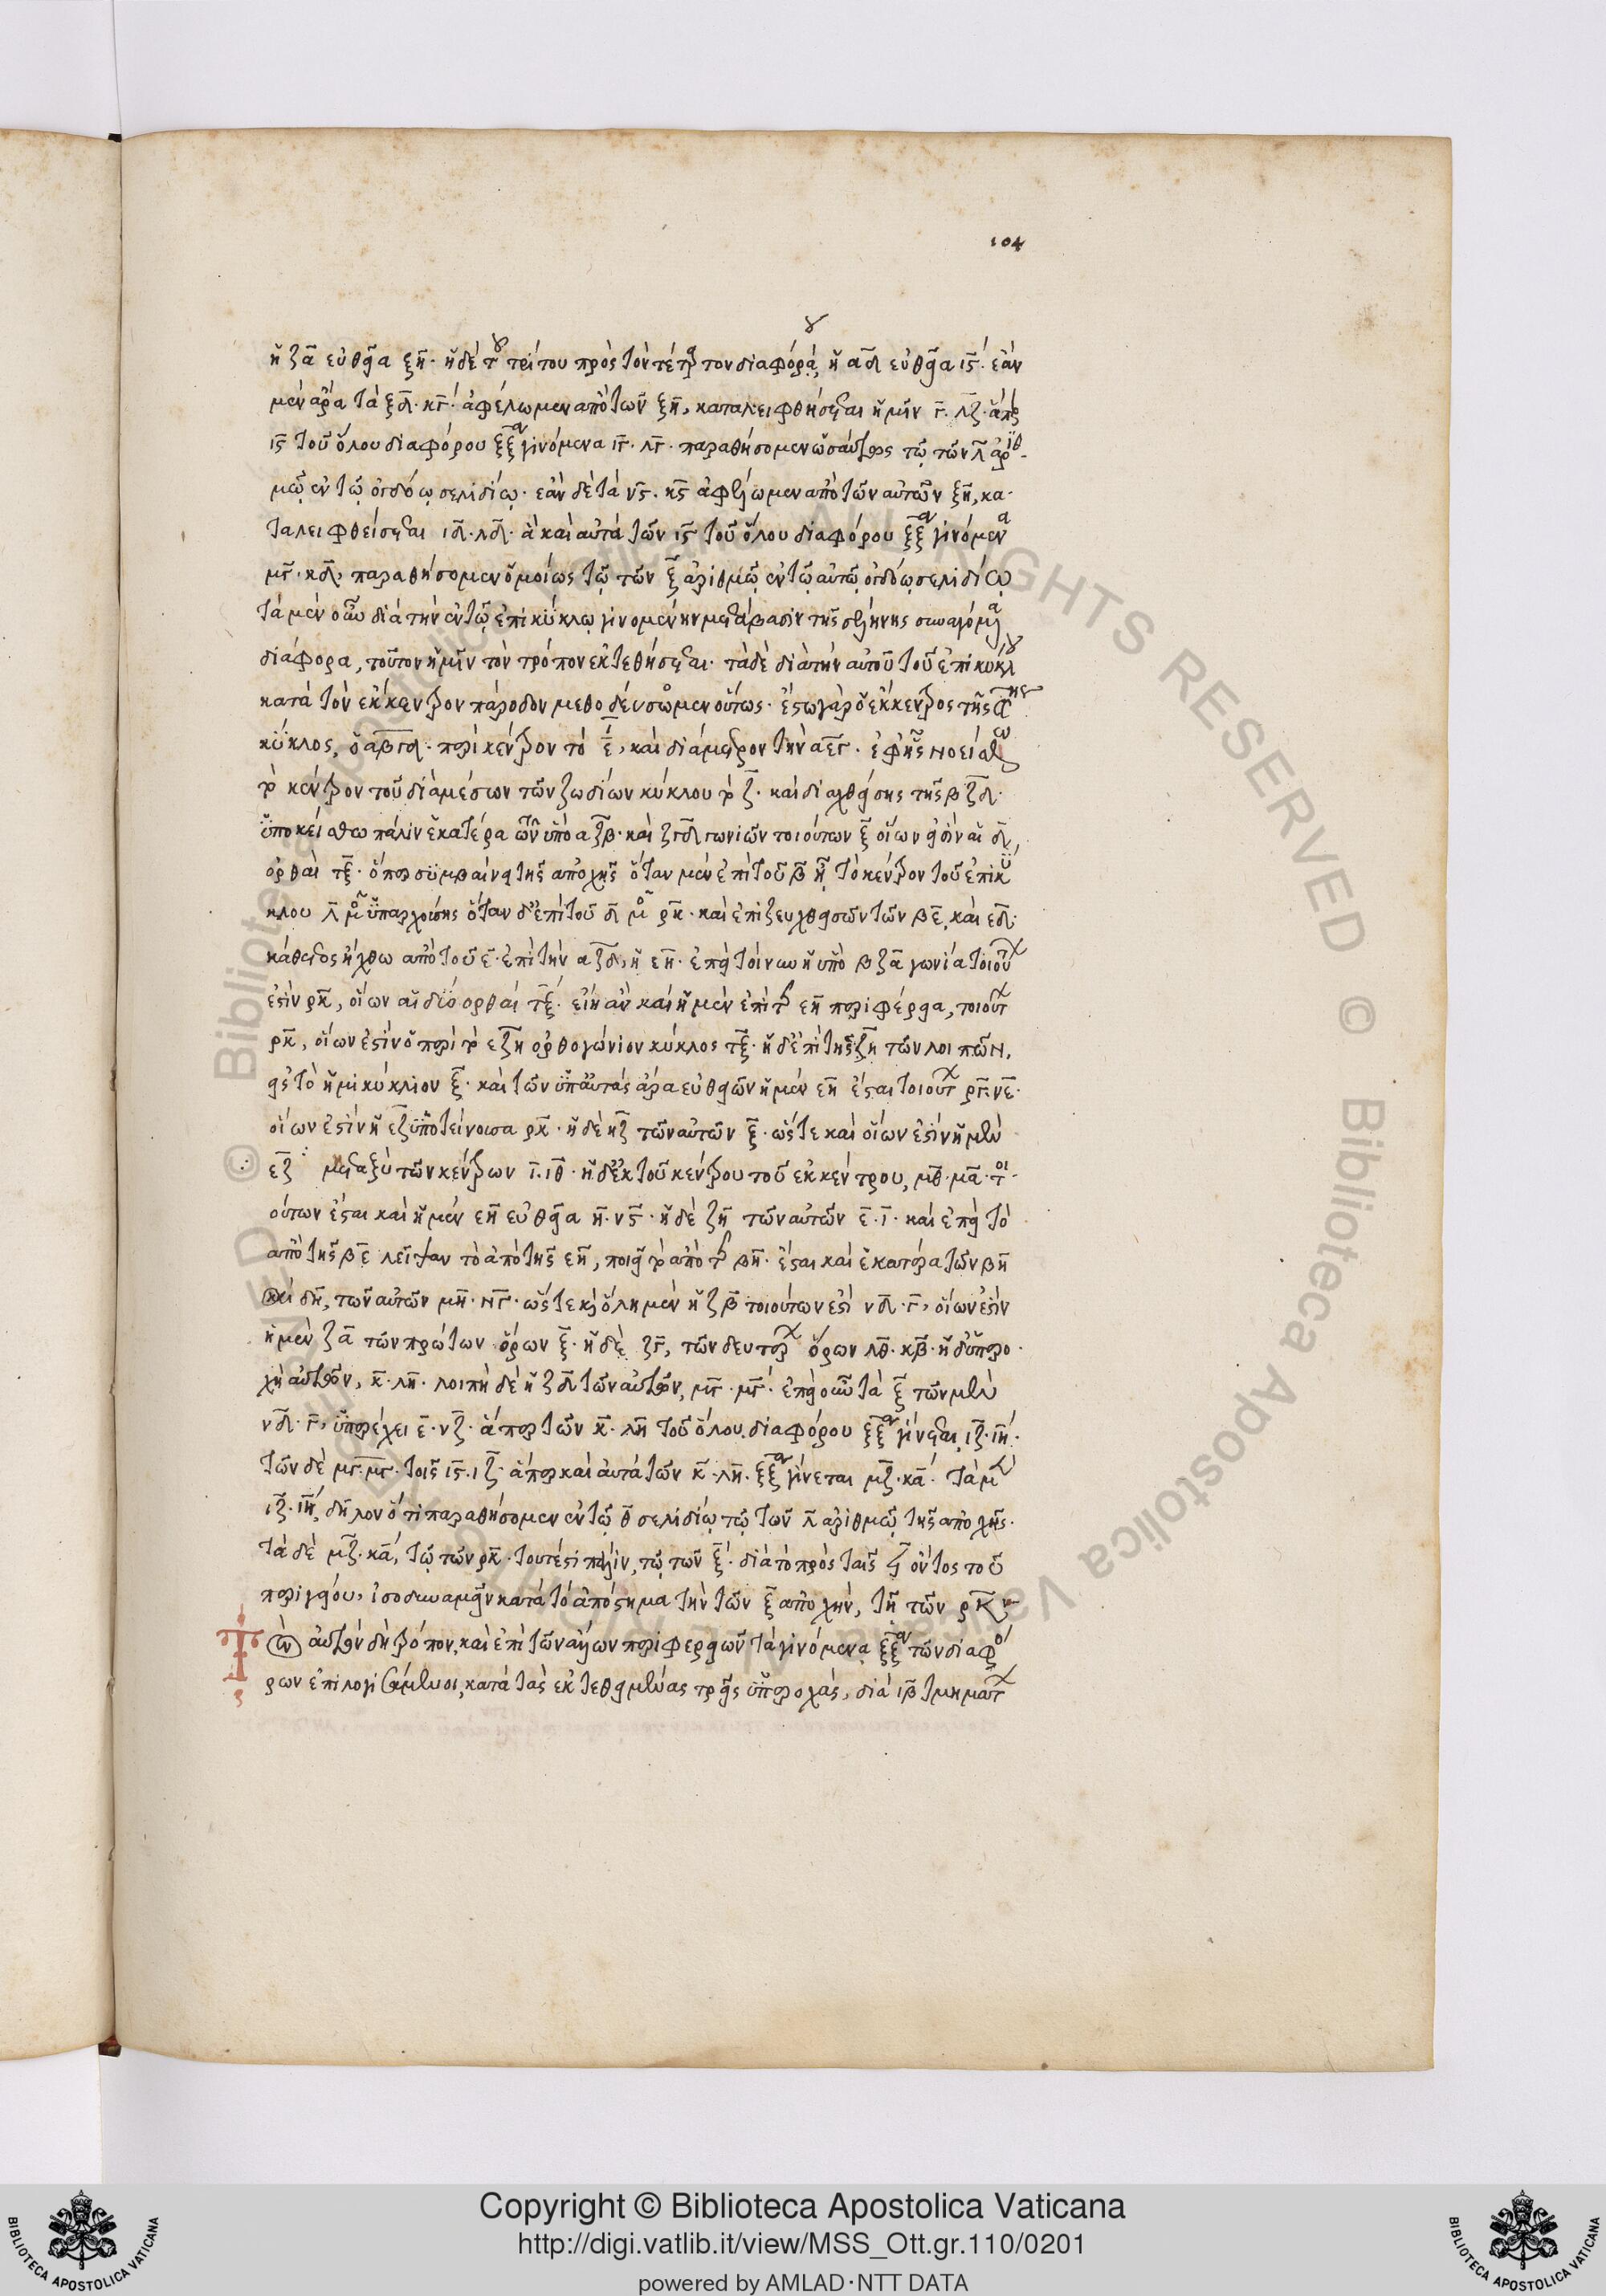 104
ἡ ζα εὐθεῖα ξη· ἡ δὲ τοῦ τρίτου πρὸς τὸν τέταρτον διαφορά, ἡ αδ εὐθεῖα ιϛ· ἐὰν
μὲν ἄρα τὰ ξδ· κγ· ἀφέλωμεν ἀπὸ τῶν ξη, καταλειφθήσεται ἡμῖν γ· λζ· ἅπερ
ιϛ τοῦ ὅλου διαφόρου ξξα γινόμενα ιγ· λγ· παραθήσομεν ὡσαύτως τῷ τῶν λ ἀριθ-
μῷ ἐν τῷ ὀγδόῳ σελιδίῳ· ἐὰν δὲ τὰ νγ· κϛ ἀφέλωμεν ἀπὸ τῶν αὐτῶν ξη, κα-
ταλειφθείσεται ιδ· λδ· ἃ καὶ αὐτὰ τῶν ιϛ τοῦ ὅλου διαφόρου ξξα γινόμενα
κδ, παραθήσομεν ὁμοίως τῷ τῶν ξ ἀριθμῷ ἐν τῷ αὐτῷ ὀγδόῳ σελιδίῳ
τὰ μὲν οὖν διὰ τὴν ἐν τῷ ἐπικύκλῳ γινομένην μετάβασιν τῆς σελήνης συναγόμενα
διάφορα, τοῦτον ἡμῖν τὸν τρόπον ἐκτεθήσεται· τὰ δὲ διὰ τὴν αὐτοῦ τοῦ ἐπικύκλου
κατὰ τὸν ἔκκεντρον πάροδον μεθοδεύσωμεν οὕτως· ἔστω γὰρ ὁ ἔκκεντρος τῆς
κύκλος, ὁ αβγδ· περὶ κέντρον τὸ ε, καὶ διάμετρον τὴν αεγ· ἐφ' ἧς νοείσθω
τὸ κέντρον τοῦ διὰ μέσων τῶν ζωδίων κύκλου τὸ ζ· καὶ διαχθείσης τῆς βζδ·
ὑποκείσθω πάλιν ἑκατέρα τῶν ὑπὸ αζβ· καὶ ζγδ γωνιῶν τοιούτων ξ οἵων εἰσὶν αἱ δ
ὀρθαὶ τξ· ὅπερ συμβαίνει τῆς ἀποχῆς ὅταν μὲν ἐπὶ τοῦ β ᾖ τὸ κέντρον τοῦ ἐπικύ
κλου λ μο ὑπαρχούσης ὅταν δ' ἐπὶ τοῦ δ μο ρκ· καὶ ἐπιζευχθεισῶν τῶν βε, καὶ εδ·
κάθετος ἤχθω ἀπὸ τοῦ ε· ἐπὶ τὴν βζδ, ἡ εη· ἐπεὶ τοίνυν ἡ ὑπὸ βζα γωνία τοιούτων
ἐστὶν ρκ, οἵων αἱ δύο ὀρθαὶ τξ· εἴη ἂν καὶ ἡ μὲν ἐπὶ τῆς εη περιφέρεια, τοιούτων
ρκ, οἵων ἐστὶν ὁ περὶ τὸ εζη ὀρθογώνιον κύκλος τξ· ἡ δ' ἐπὶ τῆς ζη τῶν λοιπῶν,
εἰς τὸ ἡμικύκλιον ξ· καὶ τῶν ὑπ' αὐτὰς ἄρα εὐθειῶν ἡ μὲν εη ἔσται τοιούτων ργ· νε·
οἵων ἐστὶν ἡ εζ ὑποτείνουσα ρκ· ἡ δὲ ηζ τῶν αὐτῶν ξ· ὥστε καὶ οἵων ἐστὶν ἡ μὲν
εζ μεταξὺ τῶν κέντρων ι· ιθ· ἡ δ' ἐκ τοῦ κέντρου τοῦ ἐκκέντρου, μθ· μα· τοι-
ούτων ἔσται καὶ ἡ μὲν εη εὐθεῖα η· νϛ· ἡ δὲ ζη τῶν αὐτῶν ε· ι· καὶ ἐπεὶ τὸ
ἀπὸ τῆς βε λεῖψαν τὸ ἀπὸ τῆς εη, ποιεῖ τὸ ἀπὸ τῆς βη· ἔσται καὶ ἑκατέρα τῶν βη
καὶ δη, τῶν αὐτῶν μη· νγ· ὥστε καὶ ὅλη μὲν ἡ ζβ τοιούτων ἐστὶ νδ· γ, οἵων ἐστὶν
ἡ μὲν ζα τῶν πρώτων ὅρων ξ· ἡ δὲ ζγ, τῶν δευτέρων ὅρων λθ· κβ· ἡ δ' ὑπερο-
χὴ αὐτῶν, κ· λη· λοιπὴ δὲ ἡ ζδ τῶν αὐτῶν, μγ· μγ· ἐπεὶ οὖν τὰ ξ τῶν μὲν
νδ· γ, ὑπερέχει ε· νζ· ἅπερ τῶν κ· λη τοῦ ὅλου διαφόρου ξξα γίνεται, ιζ· ιη·
τῶν δὲ μγ· μγ· τοῖς ιϛ· ιζ· ἅπερ καὶ αὐτὰ τῶν κ· λη· ξξα γίνεται μζ· κα· τὰ μὲν
ιζ· ιη, δῆλον ὅτι παραθήσομεν ἐν τῷ θ σελιδίῳ τῷ τῶν λ ἀριθμῷ τῆς ἀποχῆς·
τὰ δὲ μζ· κα, τῷ τῶν ρκ· τουτέστι πάλιν, τῷ τῶν ξ· διὰ τὸ πρὸς ταῖς ὄντος τοῦ
περιγείου, ἰσοδυναμεῖν κατὰ τὸ ἀπόστημα τὴν τῶν ξ ἀποχήν, τῇ τῶν ρκ
τὸν αὐτὸν δὴ τρόπον, καὶ ἐπὶ τῶν ἄλλων περιφερειῶν τὰ γινόμενα ξξα τῶν διαφό
ρων ἐπιλογισάμενοι, κατὰ τὰς ἐκτεθειμένας τρεῖς ὑπεροχάς, διὰ ιβ τμημάτων
Copyright © Biblioteca Apostolica Vaticana
http://digi.vatlib.it/view/MSS_Ott.gr.110/0201
powered by AMLAD·NTT DATA
BIBLIOTECA APOSTOLICA VATICANA
BIBLIOTECA APOSTOLICA VATICANA